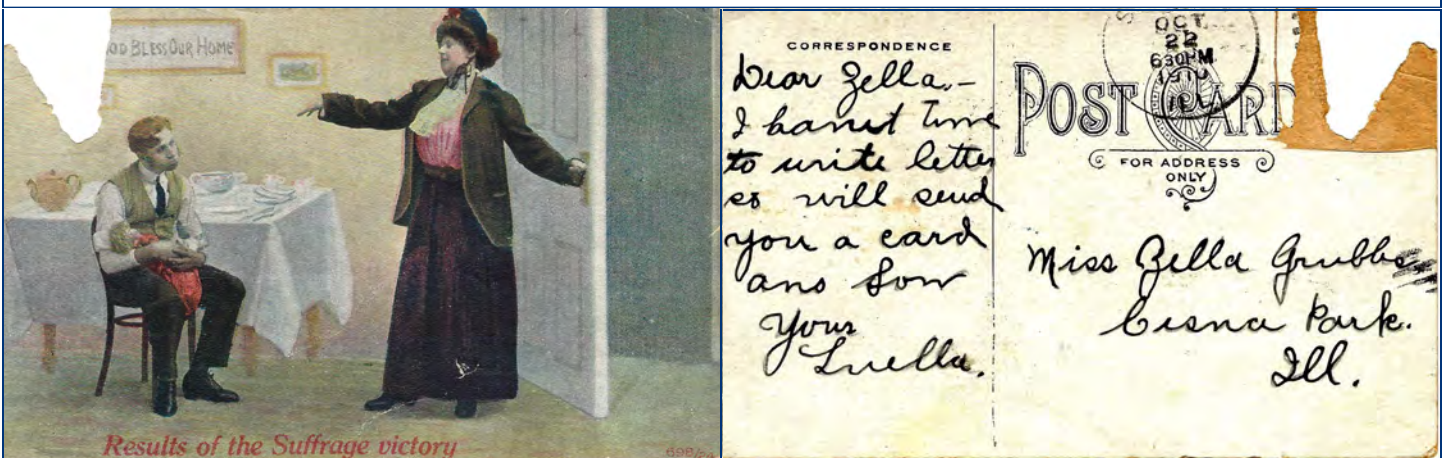 OD BLESS OUR HOME
Results of the Suffrage victory
CORRESPONDENCE
Dear Zella,-
I hav'nt Time
to write letter
so will send
you a card
ans Soon
Your
Luella.
OCT
22
630PM
1910
ILL
POST CARD
FOR ADDRESS
ONLY
Miss Zella Grubbs
Cisna Park.
Ill.